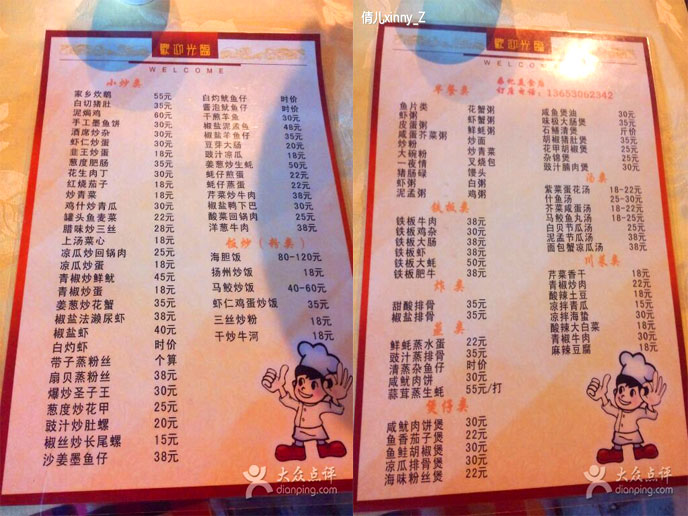 歡迎光臨
WELCOME
小炒类
家乡炊鹌 55元
白切猪肚 35元
泥焗鸡 60元
手工墨鱼饼 30元
酒席炒杂 30元
虾仁炒蛋 30元
韭王炒蛋 18元
葱度肥肠 35元
花生肉丁 30元
红烧茄子 18元
炒青菜 18元
鸡什炒青瓜 30元
罐头鱼麦菜 22元
腊味炒三丝 28元
上汤菜心 18元
凉瓜炒回锅肉 25元
凉瓜炒蛋 18元
青椒炒鲜鱿 45元
青椒炒蛋 18元
姜葱炒花蟹 35元
椒盐法濑尿虾 38元
椒盐虾 40元
白灼虾 时价
带子蒸粉丝 个算
扇贝蒸粉丝 38元
爆炒圣子王 30元
葱度炒花甲 25元
豉汁炒肚螺 20元
椒丝炒长尾螺 15元
沙姜墨鱼仔 38元
白灼鱿鱼仔 时价
酱泡鱿鱼仔 时价
干煎羊鱼 30元
椒盐泥孟鱼 48元
椒盐羊鱼仔 35元
豆芽大肠 20元
豉汁凉瓜 18元
姜葱炒生蚝 50元
蚝仔煎蛋 22元
蚝仔蒸蛋 22元
芹菜炒牛肉 38元
椒盐鸭下巴 30元
酸菜回锅肉 25元
洋葱牛肉 38元
饭炒(粉类)
海胆饭 80-120元
扬州炒饭 18元
马鲛炒饭 40-60元
虾仁鸡蛋炒饭 35元
三丝炒粉 18元
干炒牛河 18元
大众点评
dianping.com
倩儿xinny_Z
歡迎光臨
WELCOME
早餐类
订座电话:13653062342
鱼片类
虾粥
皮蛋粥
咸蛋芥菜粥
炒粉
大碗粉
一夜情
猪肠碌
虾粥
泥孟粥
花蟹粥
虾蟹粥
鲜蚝粥
炒面
炒青菜
叉烧包
馒头
白粥
鸡粥
铁板类
铁板牛肉 38元
铁板鸡杂 30元
铁板大肠 38元
铁板虾 38元
铁板大蚝 50元
铁板肥牛 38元
炸类
甜酸排骨 35元
椒盐排骨 35元
蒸类
鲜蚝蒸水蛋 22元
豉汁蒸排骨 35元
清蒸杂鱼仔 时价
咸鱿肉饼 30元
蒜茸蒸生蚝 55元/打
煲仔类
咸鱿肉饼煲 30元
鱼香茄子煲 22元
鱼鲑胡椒煲 30元
凉瓜排骨煲 30元
海味粉丝煲 22元
咸鱼煲油 30元
味极大肠煲 35元
石鳝清煲 斤价
胡椒猪肚煲 35元
花甲胡椒煲 25元
杂锦煲 25元
豉汁腩肉煲 30元
汤类
紫菜蛋花汤 18-22元
什鱼汤 25-30元
芥菜咸蛋汤 18-22元
马鲛鱼丸汤 18-22元
白贝节瓜汤 25元
泥孟节瓜汤 38元
面包蟹凉瓜汤 38元
川菜类
芹菜香干 18元
青椒炒肉 22元
酸辣土豆 18元
凉拌青瓜 15元
凉拌海蛰 30元
酸辣大白菜 18元
青椒牛肉 30元
麻辣豆腐 18元
大众点评
dianping.com